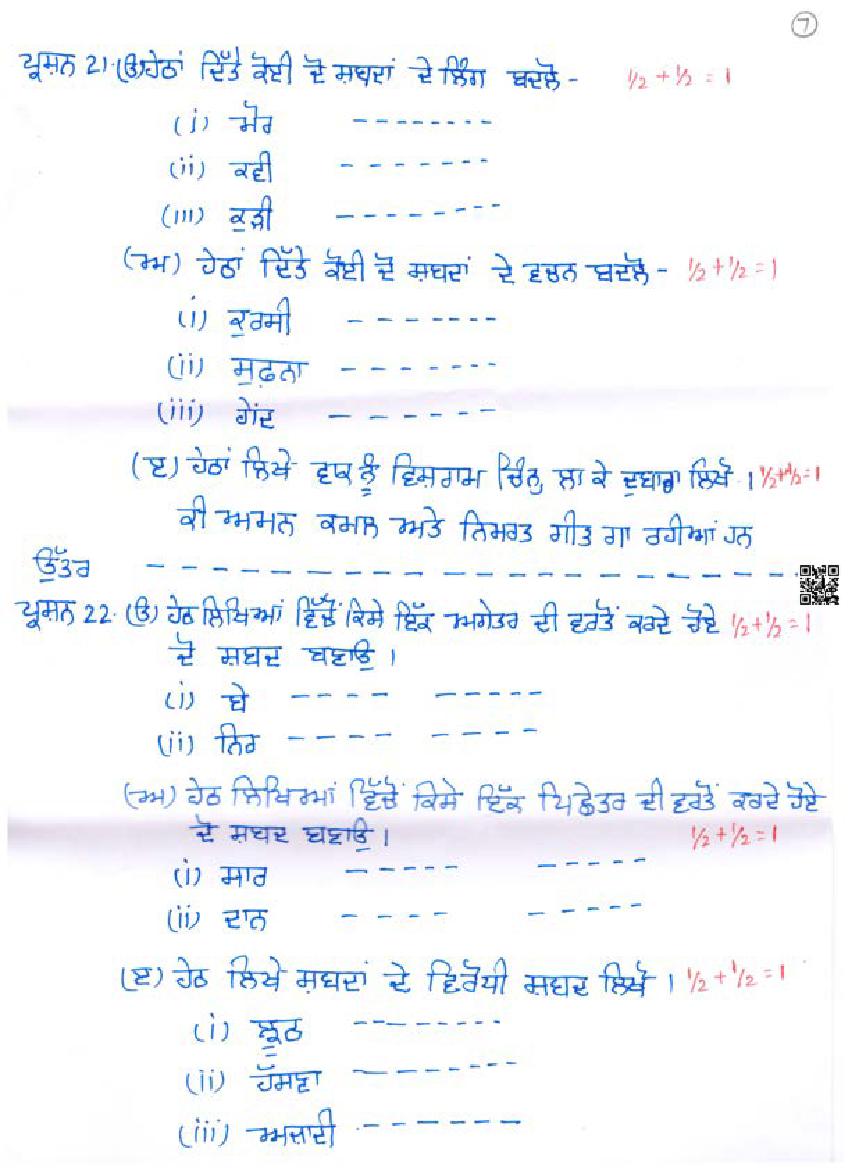 7
ਪ੍ਰਸ਼ਨ 21. (ੳ) ਹੇਠਾਂ ਦਿੱਤੇ ਕੋਈ ਦੋ ਸ਼ਬਦਾਂ ਦੇ ਲਿੰਗ ਬਦਲੋ - 1/2 + 1/2 = 1
(i) ਮੋਰ --------
(ii) ਕਵੀ --------
(iii) ਕੁੜੀ --------
(ਅ) ਹੇਠਾਂ ਦਿੱਤੇ ਕੋਈ ਦੋ ਸ਼ਬਦਾਂ ਦੇ ਵਚਨ ਬਦਲੋ - 1/2 + 1/2 = 1
(i) ਕੁਰਸੀ -------
(ii) ਸੁਫ਼ਨਾ -------
(iii) ਗੇਂਦ -------
(ੲ) ਹੇਠਾਂ ਲਿਖੇ ਵਾਕ ਨੂੰ ਵਿਸ਼ਰਾਮ ਚਿੰਨ੍ਹ ਲਾ ਕੇ ਦੁਬਾਰਾ ਲਿਖੋ । 1/2 + 1/2 = 1
ਕੀ ਅਮਨ ਕਮਲ ਅਤੇ ਨਿਮਰਤ ਗੀਤ ਗਾ ਰਹੀਆਂ ਹਨ
ਉੱਤਰ ------------------
ਪ੍ਰਸ਼ਨ 22. (ੳ) ਹੇਠ ਲਿਖਿਆਂ ਵਿੱਚੋਂ ਕਿਸੇ ਇੱਕ ਅਗੇਤਰ ਦੀ ਵਰਤੋਂ ਕਰਦੇ ਹੋਏ 1/2 + 1/2 = 1
ਦੋ ਸ਼ਬਦ ਬਣਾਓ ।
(i) ਬੇ ---- -----
(ii) ਨਿਰ ---- ----
(ਅ) ਹੇਠ ਲਿਖਿਆਂ ਵਿੱਚੋਂ ਕਿਸੇ ਇੱਕ ਪਿਛੇਤਰ ਦੀ ਵਰਤੋਂ ਕਰਦੇ ਹੋਏ
ਦੋ ਸ਼ਬਦ ਬਣਾਓ । 1/2 + 1/2 = 1
(i) ਸਾਰ ----- -----
(ii) ਦਾਨ ---- -----
(ੲ) ਹੇਠ ਲਿਖੇ ਸ਼ਬਦਾਂ ਦੇ ਵਿਰੋਧੀ ਸ਼ਬਦ ਲਿਖੋ । 1/2 + 1/2 = 1
(i) ਝੂਠ --------
(ii) ਹੱਸਣਾ --------
(iii) ਅਜ਼ਾਦੀ --------